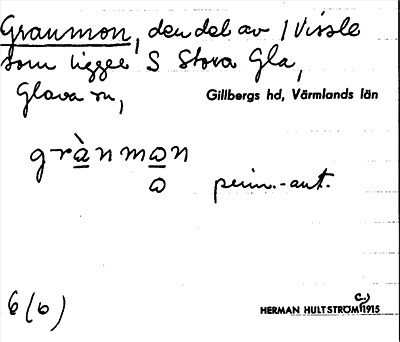 Granmon, den del av 1 Vissle
som ligger S Stora Gla,
Glava sn,
Gillbergs hd, Värmlands län
grànmon
o
penn.-ant.
6(b)
HERMAN HULTSTRÖM c.) 1915